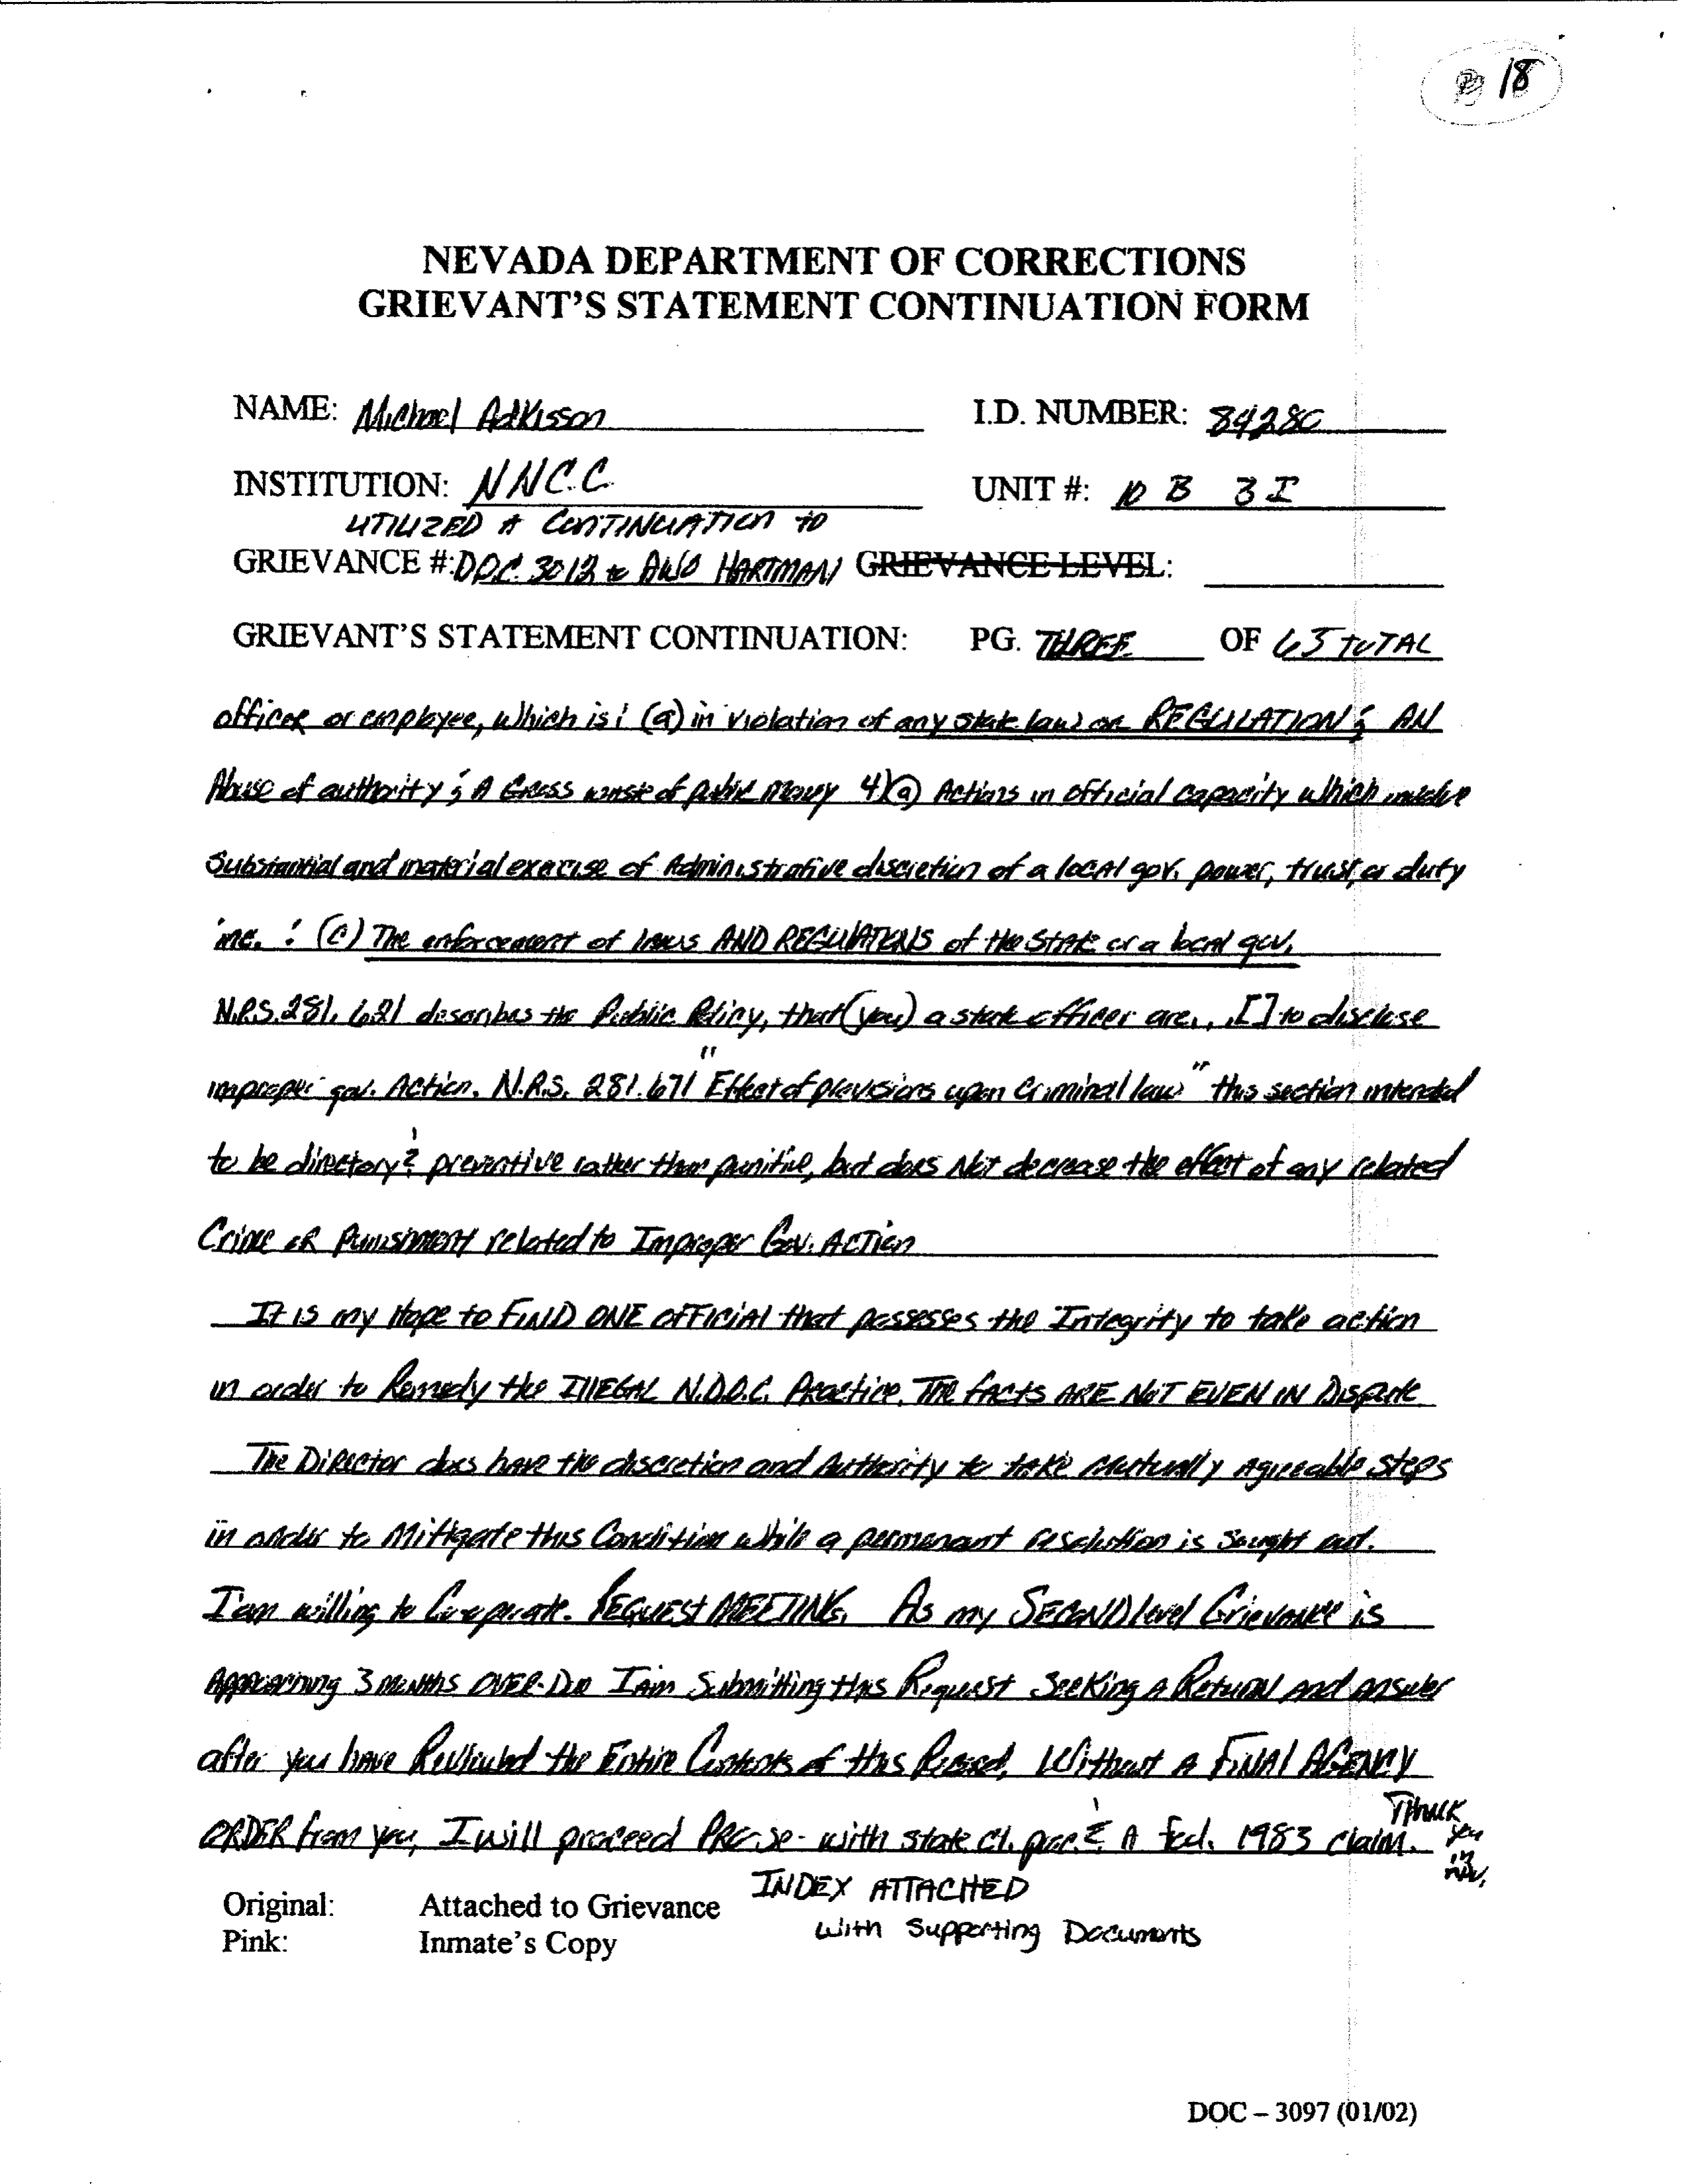 18
NEVADA DEPARTMENT OF CORRECTIONS
GRIEVANT'S STATEMENT CONTINUATION FORM
NAME: Michael Adkisson I.D. NUMBER: 84280
INSTITUTION: NNCC UNIT #: 10 B 3 I
UTILIZED A CONTINUATION to
GRIEVANCE #: DOC 3012 to AWO HARTMAN GRIEVANCE LEVEL:
GRIEVANT'S STATEMENT CONTINUATION: PG. THREE OF 65 TOTAL
officer or employee, which is: (a) in violation of any state law or REGULATION; AN
Abuse of authority; A Gross waste of public money 4)(a) Actions in official capacity which involve
Substantial and material exercise of Administrative discretion of a local gov. power, trust, or duty
inc. : (C) The enforcement of laws AND REGULATIONS of the State or a local gov.
N.R.S. 281.621 describes the Public Policy, that (you) a state officer are,, [] to disclose
improper gov. Action. N.R.S. 281.671 "Effect of provisions upon Criminal law" this section intended
to be directory & preventive rather than punitive, but does Not decrease the effect of any related
Crime OR Punishment related to Improper Gov. ACTion
It is my Hope to FIND ONE OFFICIAl that possesses the Integrity to take action
in order to Remedy the IllEGAL N.D.O.C. Practice. The FACTS ARE NOT EVEN IN Dispute
The Director does have the discretion and Authority to take mutually agreeable steps
in order to Mitigate this Condition while a permanant resolution is sought out.
I am willing to Cooperate. REQUEST MEETING. As my SECOND level Grievance is
Approaching 3 months OVER-Due I am Submitting this Request Seeking A Return and answer
after you have Reviewed the Entire Contents of this Record. Without A FINAl AGENCY
ORDER from you, I will proceed PRO-se- with state ct. proc. & A fed. 1983 claim. Thank
you
in
adv.
INDEX ATTACHED
with Supporting Documents
Original: Attached to Grievance
Pink: Inmate's Copy
DOC – 3097 (01/02)